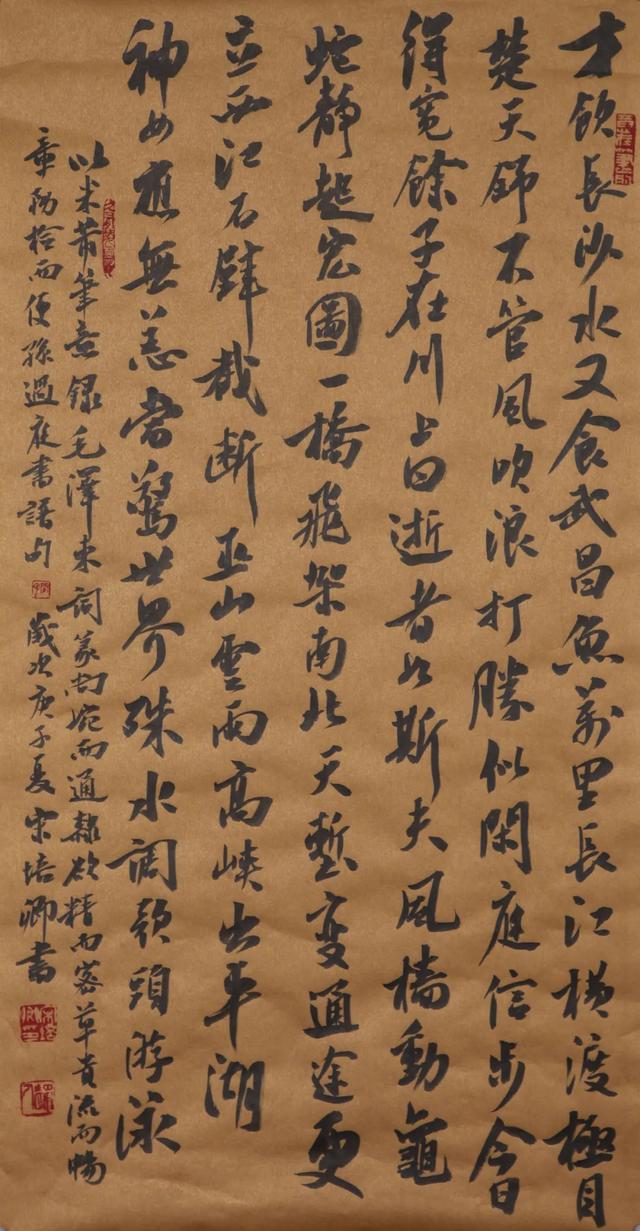 才飲長沙水又食武昌魚萬里長江橫渡極目
楚天舒不管風吹浪打勝似閑庭信步今日
得寬餘子在川上曰逝者如斯夫風檣動龜
蛇靜起宏圖一橋飛架南北天塹變通途更
立西江石壁截斷巫山雲雨高峽出平湖
神女應無恙當驚世界殊水調歌頭游泳
以米芾筆意錄毛澤東詞篆尚婉而通隸欲精而密草貴流而暢
章務檢而便孫過庭書語句 歲次庚子夏宋培卿書